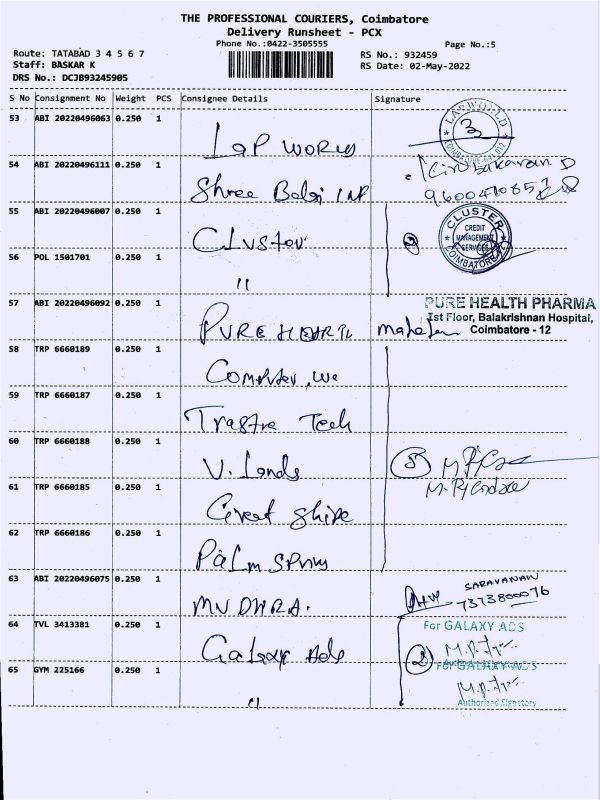 THE PROFESSIONAL COURIERS, Coimbatore
Delivery Runsheet - PCX
Phone No.:0422-3505555
Page No.:5
Route: TATABAD 3 4 5 6 7
RS No.: 932459
Staff: BASKAR K
RS Date: 02-May-2022
DRS No.: DCJB93245905
S No Consignment No Weight PCS Consignee Details Signature
53 ABI 20220496063 0.250 1
LAP WORLD
COIMBATORE-641 012
Lap World
54 ABI 20220496111 0.250 1
Shree Balaji
55 ABI 20220496007 0.250 1
Cluster
CLUSTER
CREDIT
MANAGEMENT
SERVICES
COIMBATORE
56 POL 1501701 0.250 1
"
57 ABI 20220496092 0.250 1
PURE HEALTH
PURE HEALTH PHARMA
Ist Floor, Balakrishnan Hospital,
Coimbatore - 12
58 TRP 6660189 0.250 1
59 TRP 6660187 0.250 1
Tech
60 TRP 6660188 0.250 1
V. Lands
5
61 TRP 6660185 0.250 1
Great Shine
62 TRP 6660186 0.250 1
Palm Springs
63 ABI 20220496075 0.250 1
MUDHRA.
SARAVANAN
7373800076
64 TVL 3413381 0.250 1
Galaxy Ads
For GALAXY ADS
2
Authorized Signatory
65 GYM 225166 0.250 1
"
For GALAXY ADS
Authorized Signatory